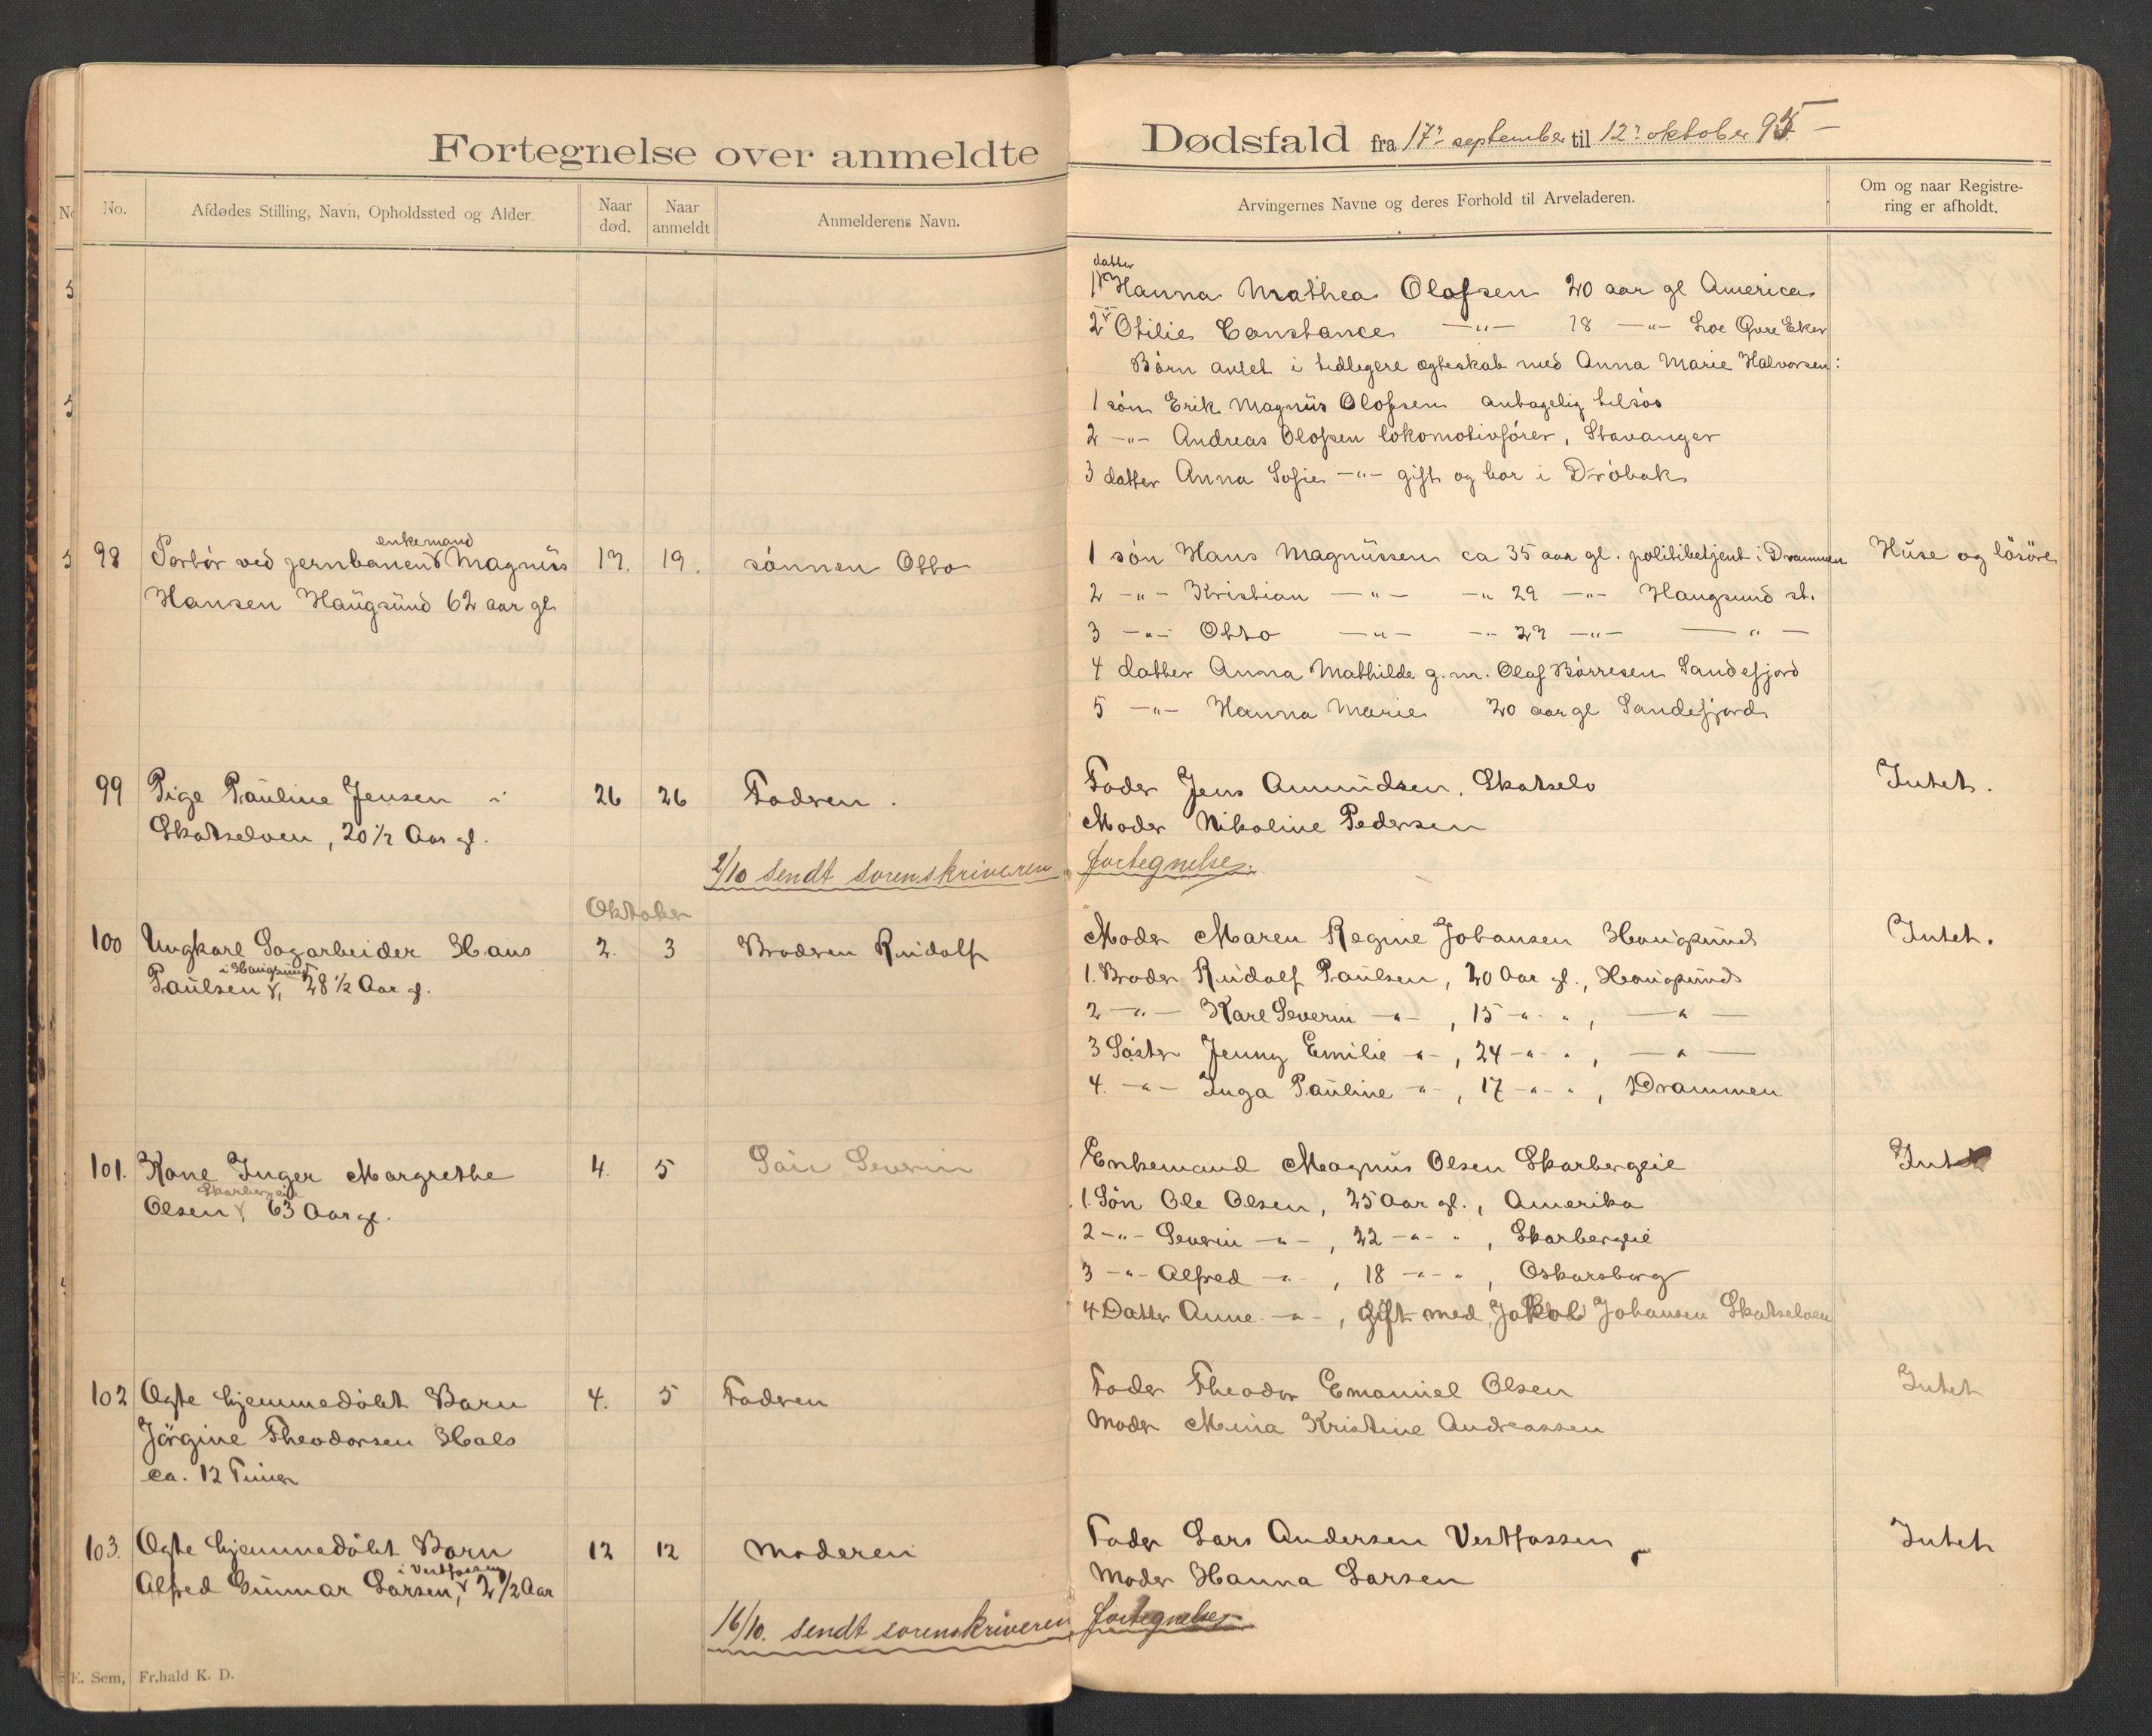 Fortegnelse over anmeldte Dødsfald fra 17' september til 12' oktober 95 —
No. Afdødes Stilling, Navn, Opholdssted og Alder. Naar død. Naar anmeldt Anmelderens Navn. Arvingernes Navne og deres Forhold til Arveladeren. Om og naar Registrering er afholdt.
datter
1 Hanna Mathea Olofsen 20 aar gl America
2 Otilie Constance —"— 18 —"— Loe Øvre Eker
Børn avlet i tidligere ægteskab med Anna Marie Halvorsen:
1 søn Erik Magnüs Olofsen antagelig tilsøs
2 —"— Andreas Olofsen lokomotivfører, Stavanger
3 datter Anna Sofie —"— gift og bor i Drøbak
98 Portør ved jernbanen enkemand Magnüs 17. 19. sønnen Otto
Hansen Haügsünd 62 aar gl
1 søn Hans Magnüssen ca 35 aar gl. politibetjent i Drammen Hüse og løsøre
2 —"— Kristian —"— —" 29 —"— Haugsund st.
3 —"— Otto —"— —" 27 —"— —"—
4 datter Anna Mathilde g. m. Olaf Børresen Sandefjord
5 —"— Hanna Marie 20 aar gl Sandefjord
99 Pige Paüline Jensen i 26 26 Fadren.
Skotselven, 20 1/2 Aar gl.
Fader Jens Amundsen, Skotselv Intet.
Moder Nikoline Pedersen
2/10 sendt sorenskriveren fortegnelse.
Oktober
100 Ungkarl Sagarbeider Hans 2. 3 Brodren Rüdolf
i Haugsund
Paülsen, 28 1/2 Aar gl.
Moder Maren Regine Johansen Haugsünd Intet.
1. Broder Rüdolf Paülsen, 20 Aar gl., Haugsünd
2 —"— Karl Severin —"—, 15 —"— ", —"—
3 Søster Jenny Emilie —"—, 24 —"— ", —"—
4. —"— Inga Paüline —"—, 17 —"— ", Drammen
101. Kone Inger Margrethe 4. 5 Søn Severin
Skarbergeie
Olsen, 63 Aar gl.
Enkemand Magnüs Olsen Skarbergeie Intet
1. Søn Ole Olsen, 25 Aar gl., Amerika
2 —"— Severin —"—, 22 —"— ", Skarbergeie
3 —"— Alfred —"—, 18 —"— ", Oskarsborg
4 Datter Anne —"—, gift med Jakob Johansen Skotselven
102 Ægte hjemmedøbt Barn 4. 5 Fadren
Jørgine Theodorsen Hals
ca. 12 Timer
Fader Theodor Emanüel Olsen Intet
Moder Mina Kristine Andreassen
103. Ægte hjemmedøbt Barn 12 12 Moderen
i Vestfossen
Alfred Günnar Larsen, 2 1/2 Aar
Fader Lars Andersen Vestfossen Intet
Moder Hanna Larsen
16/10. sendt sorenskriveren fortegnelse
E. Sem, Fr.hald K. D.